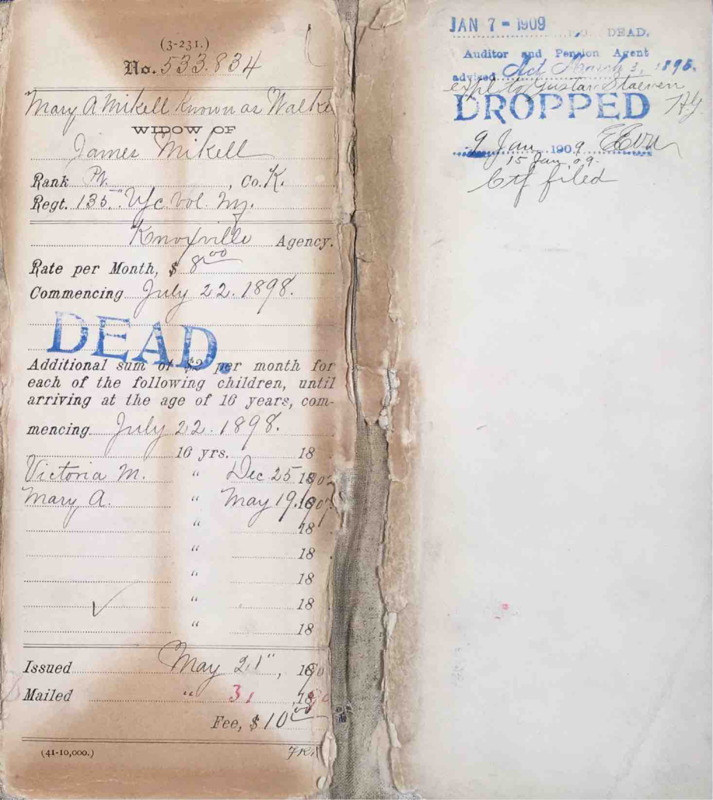 (3-231.)
No. 533.834
Mary A Mikell known as Walke
WIDOW OF
James Mikell
Rank Pt , Co. K.
Regt. 135. Vol.
Knoxville Agency.
Rate per Month, $ 8.00
Commencing July 22. 1898.
DEAD.
Additional sum of $2 per month for
each of the following children, until
arriving at the age of 16 years, com-
mencing July 22. 1898.
16 yrs. 18
Victoria M. " Dec 25
Mary A. " May 19.
" 18
" 18
" 18
" 18
" 18
Issued May 21",
Mailed " 31
Fee, $ 10.00
(41-10,000.)
JAN 7 - 1909 DEAD.
Auditor and Pension Agent
advised Act March 3, 1895.
to Gustav Staeven
DROPPED
9 Jan 1909
15 Jan 09.
Ctf filed